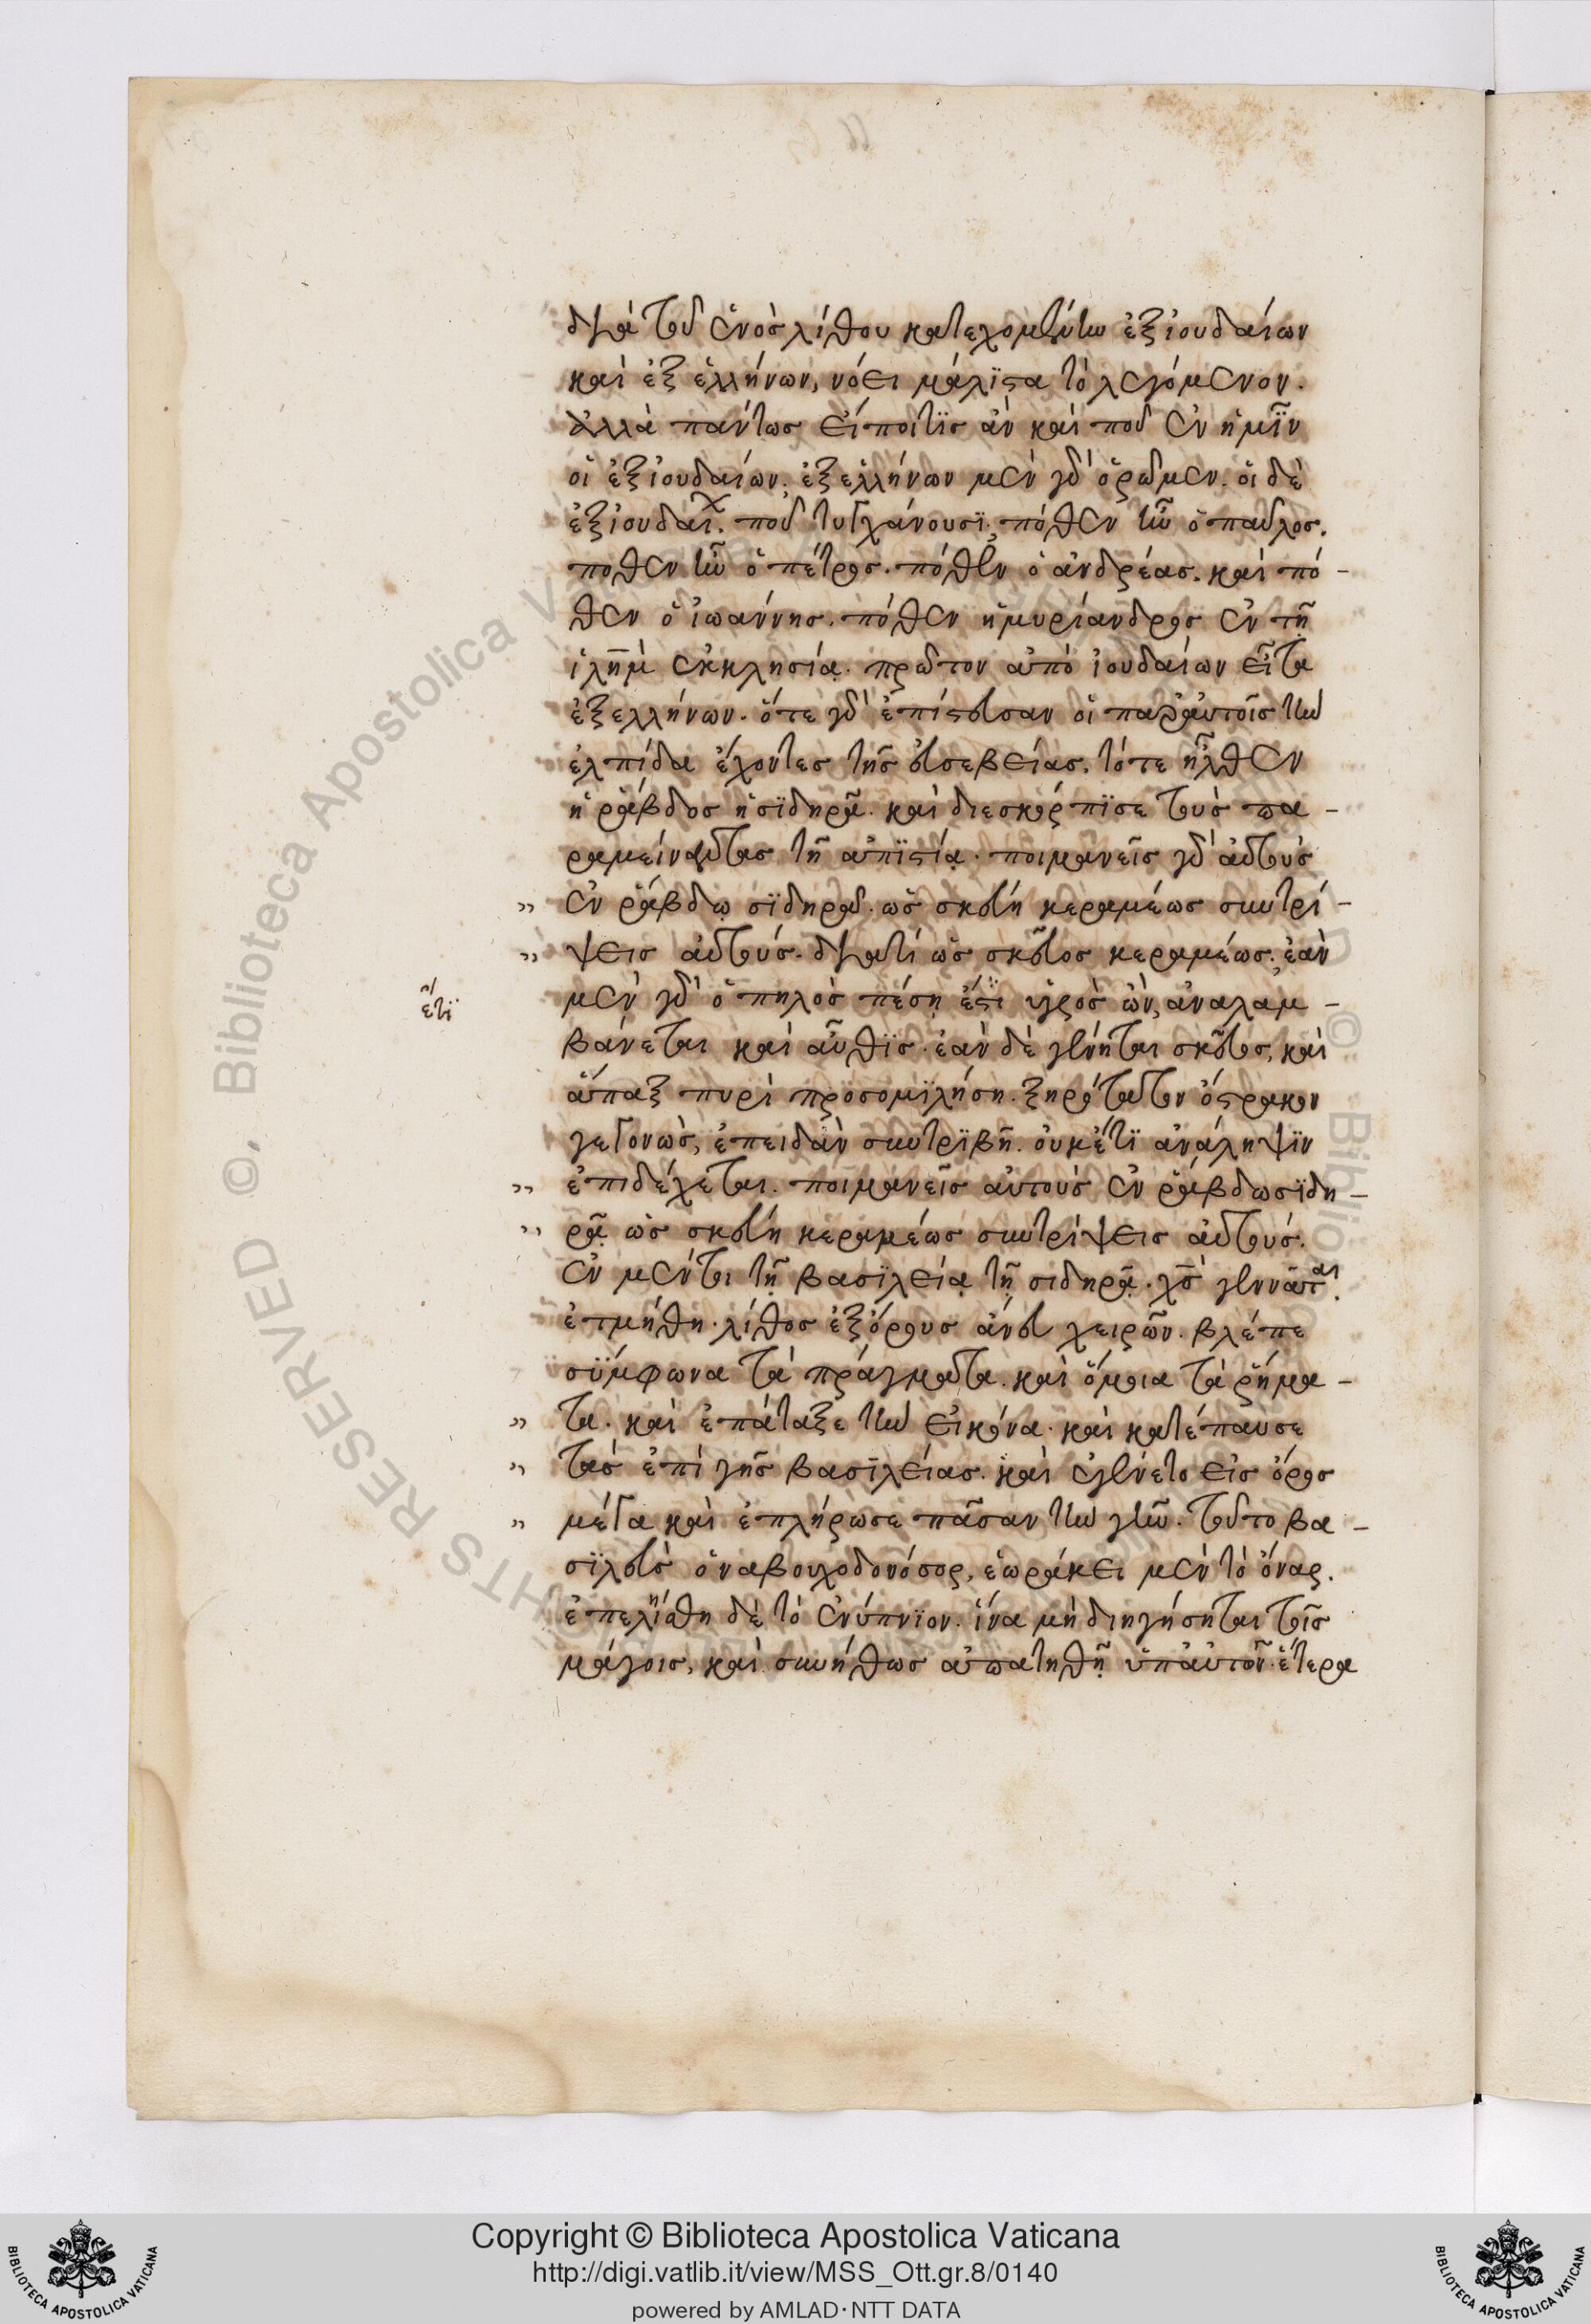 διὰ τοῦ ἑνὸς λίθου κατεχομένην ἐξ ἰουδαίων
καὶ ἐξ ἑλλήνων, νόει μάλιστα τὸ λεγόμενον.
Ἀλλὰ πάντως εἴποι τὶς ἂν καὶ ποῦ ἐν ἡμῖν
οἱ ἐξ ἰουδαίων; ἐξ ἑλλήνων μὲν γὰρ ὁρῶμεν. οἱ δὲ
ἐξ ἰουδαί. ποῦ τυγχάνουσι; πόθεν ἦν ὁ παῦλος.
πόθεν ἦν ὁ πέτρος. πόθεν ὁ ἀνδρέας. καὶ πό-
θεν ὁ ἰωάννης. πόθεν ἡ μυρίανδρος ἐν τῇ
ἰλὴμ ἐκκλησία. πρῶτον ἀπὸ ἰουδαίων εἶτα
ἐξ ἑλλήνων. ὅτε γὰρ ἐπίστευσαν οἱ παρ' αὐτοῖς τὴν
ἐλπίδα ἔχοντες τῆς εὐσεβείας. τότε ἦλθεν
ἡ ῥάβδος ἡ σιδηρᾶ. καὶ διεσκόρπισε τοὺς πα-
ραμείναντας τῇ ἀπιστίᾳ. ποιμανεῖς γὰρ αὐτοὺς
" ἐν ῥάβδῳ σιδηρᾷ. ὡς σκεύη κεραμέως συντρί-
" ψεις αὐτούς. διατί ὡς σκεῦος κεραμέως; ἐὰν
ἔτι
μὲν γὰρ ὁ πηλὸς πέσῃ ἔστι ὑγρὸς ὢν, ἀναλαμ-
βάνεται καὶ αὖθις. ἐὰν δὲ γένηται σκεῦος, καὶ
ἅπαξ πυρὶ προσομιλήσῃ. ξηρότατον ὄστρακον
γεγονὼς, ἐπειδὰν συντριβῇ. οὐκέτι ἀνάληψιν
" ἐπιδέχεται. ποιμανεῖς αὐτοὺς ἐν ῥάβδω σιδη-
" ρᾷ ὡς σκεύη κεραμέως συντρίψεις αὐτούς.
ἐν μέντοι τῇ βασιλείᾳ τῇ σιδηρᾷ. χς γεννᾶται.
ἐτμήθη. λίθος ἐξ ὄρους ἄνευ χειρῶν. βλέπε
σύμφωνα τὰ πράγματα. καὶ ὅμοια τὰ ῥήμα-
" τα. καὶ ἐπάταξε τὴν εἰκόνα. καὶ κατέπαυσε
" τὰς ἐπὶ γῆς βασιλείας. καὶ ἐγένετο εἰς ὄρος
" μέγα καὶ ἐπλήρωσε πᾶσαν τὴν γῆν. τοῦτο βα-
σιλεὺς ὁ ναβουχοδονόσορ, ἑωράκει μὲν τὸ ὄναρ.
ἐπελήσθη δὲ τὸ ἐνύπνιον. ἵνα μὴ διηγήσηται τοῖς
μάγοις, καὶ συνήθως ἀπατηθῇ ὑπ' αὐτῶν. ἕτερα
Copyright © Biblioteca Apostolica Vaticana
http://digi.vatlib.it/view/MSS_Ott.gr.8/0140
powered by AMLAD·NTT DATA